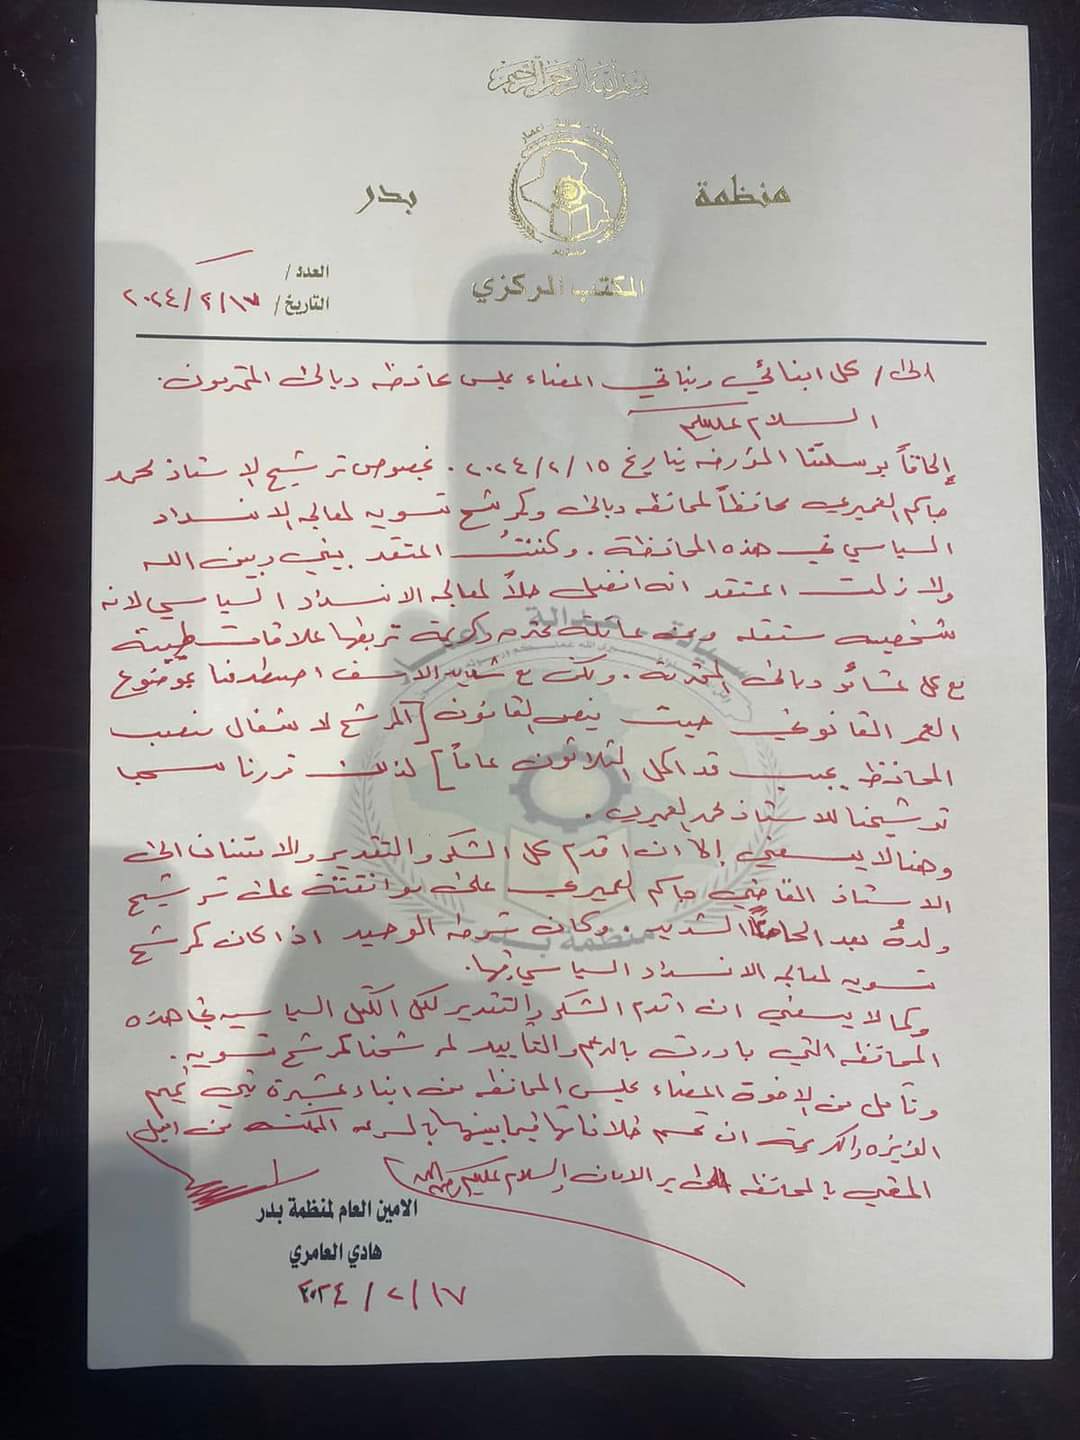 بسم الله الرحمن الرحيم
منظمة بدر
المكتب المركزي
العدد /
التاريخ / ١٧ / ٢ / ٢٠٢٤
الى / كل ابنائي وبناتي اعضاء مجلس محافظة ديالى المحترمون.
السلام عليكم
إلحاقاً برسالتنا المؤرخة بتاريخ ٢٠٢٤/٢/١٥. بخصوص ترشيح الاستاذ محمد
جاسم العميري محافظاً لمحافظة ديالى وكمرشح تسوية لمعالجة الانسداد
السياسي في هذه المحافظة. وكنتُ اعتقد بيني وبين الله
ولا زلت اعتقد انه افضل حلاً لمعالجة الانسداد السياسي لانه
شخصية مستقلة ومن عائلة محترمة وكريمة تربطها علاقات طيبة
مع كل عشائر ديالى المحترمة. ولكن مع شديد الاسف اصطدمنا بموضوع
العمر القانوني حيث ينص القانون [المرشح لاشغال منصب
المحافظ يجب قد اكمل الثلاثون عاماً] لذلك قررنا سحب
ترشيحنا للاستاذ محمد العميري.
وهنا لا يسعني إلا ان اقدم كل الشكر والتقدير والامتنان الى
الاستاذ القاضي جاسم العميري على موافقته على ترشيح
ولدهُ بعد الحاحنا الشديد. وكان شرطه الوحيد اذا كان كمرشح
تسوية لمعالجة الانسداد السياسي فيها.
وكما لا يسعني ان اقدم الشكر والتقدير لكل الكتل السياسية في هذه
المحافظة التي بادرت بالدعم والتأييد لمرشحنا كمرشح تسوية.
ونأمل من الاخوة اعضاء مجلس المحافظة من ابناء عشيرة بني تميم
العزيزة والكريمة ان تحسم خلافاتها فيما بينها بالسرعة الممكنة من اجل
المضي بالمحافظة الى بر الامان والسلام عليكم
الامين العام لمنظمة بدر
هادي العامري
١٧ / ٢ / ٢٠٢٤